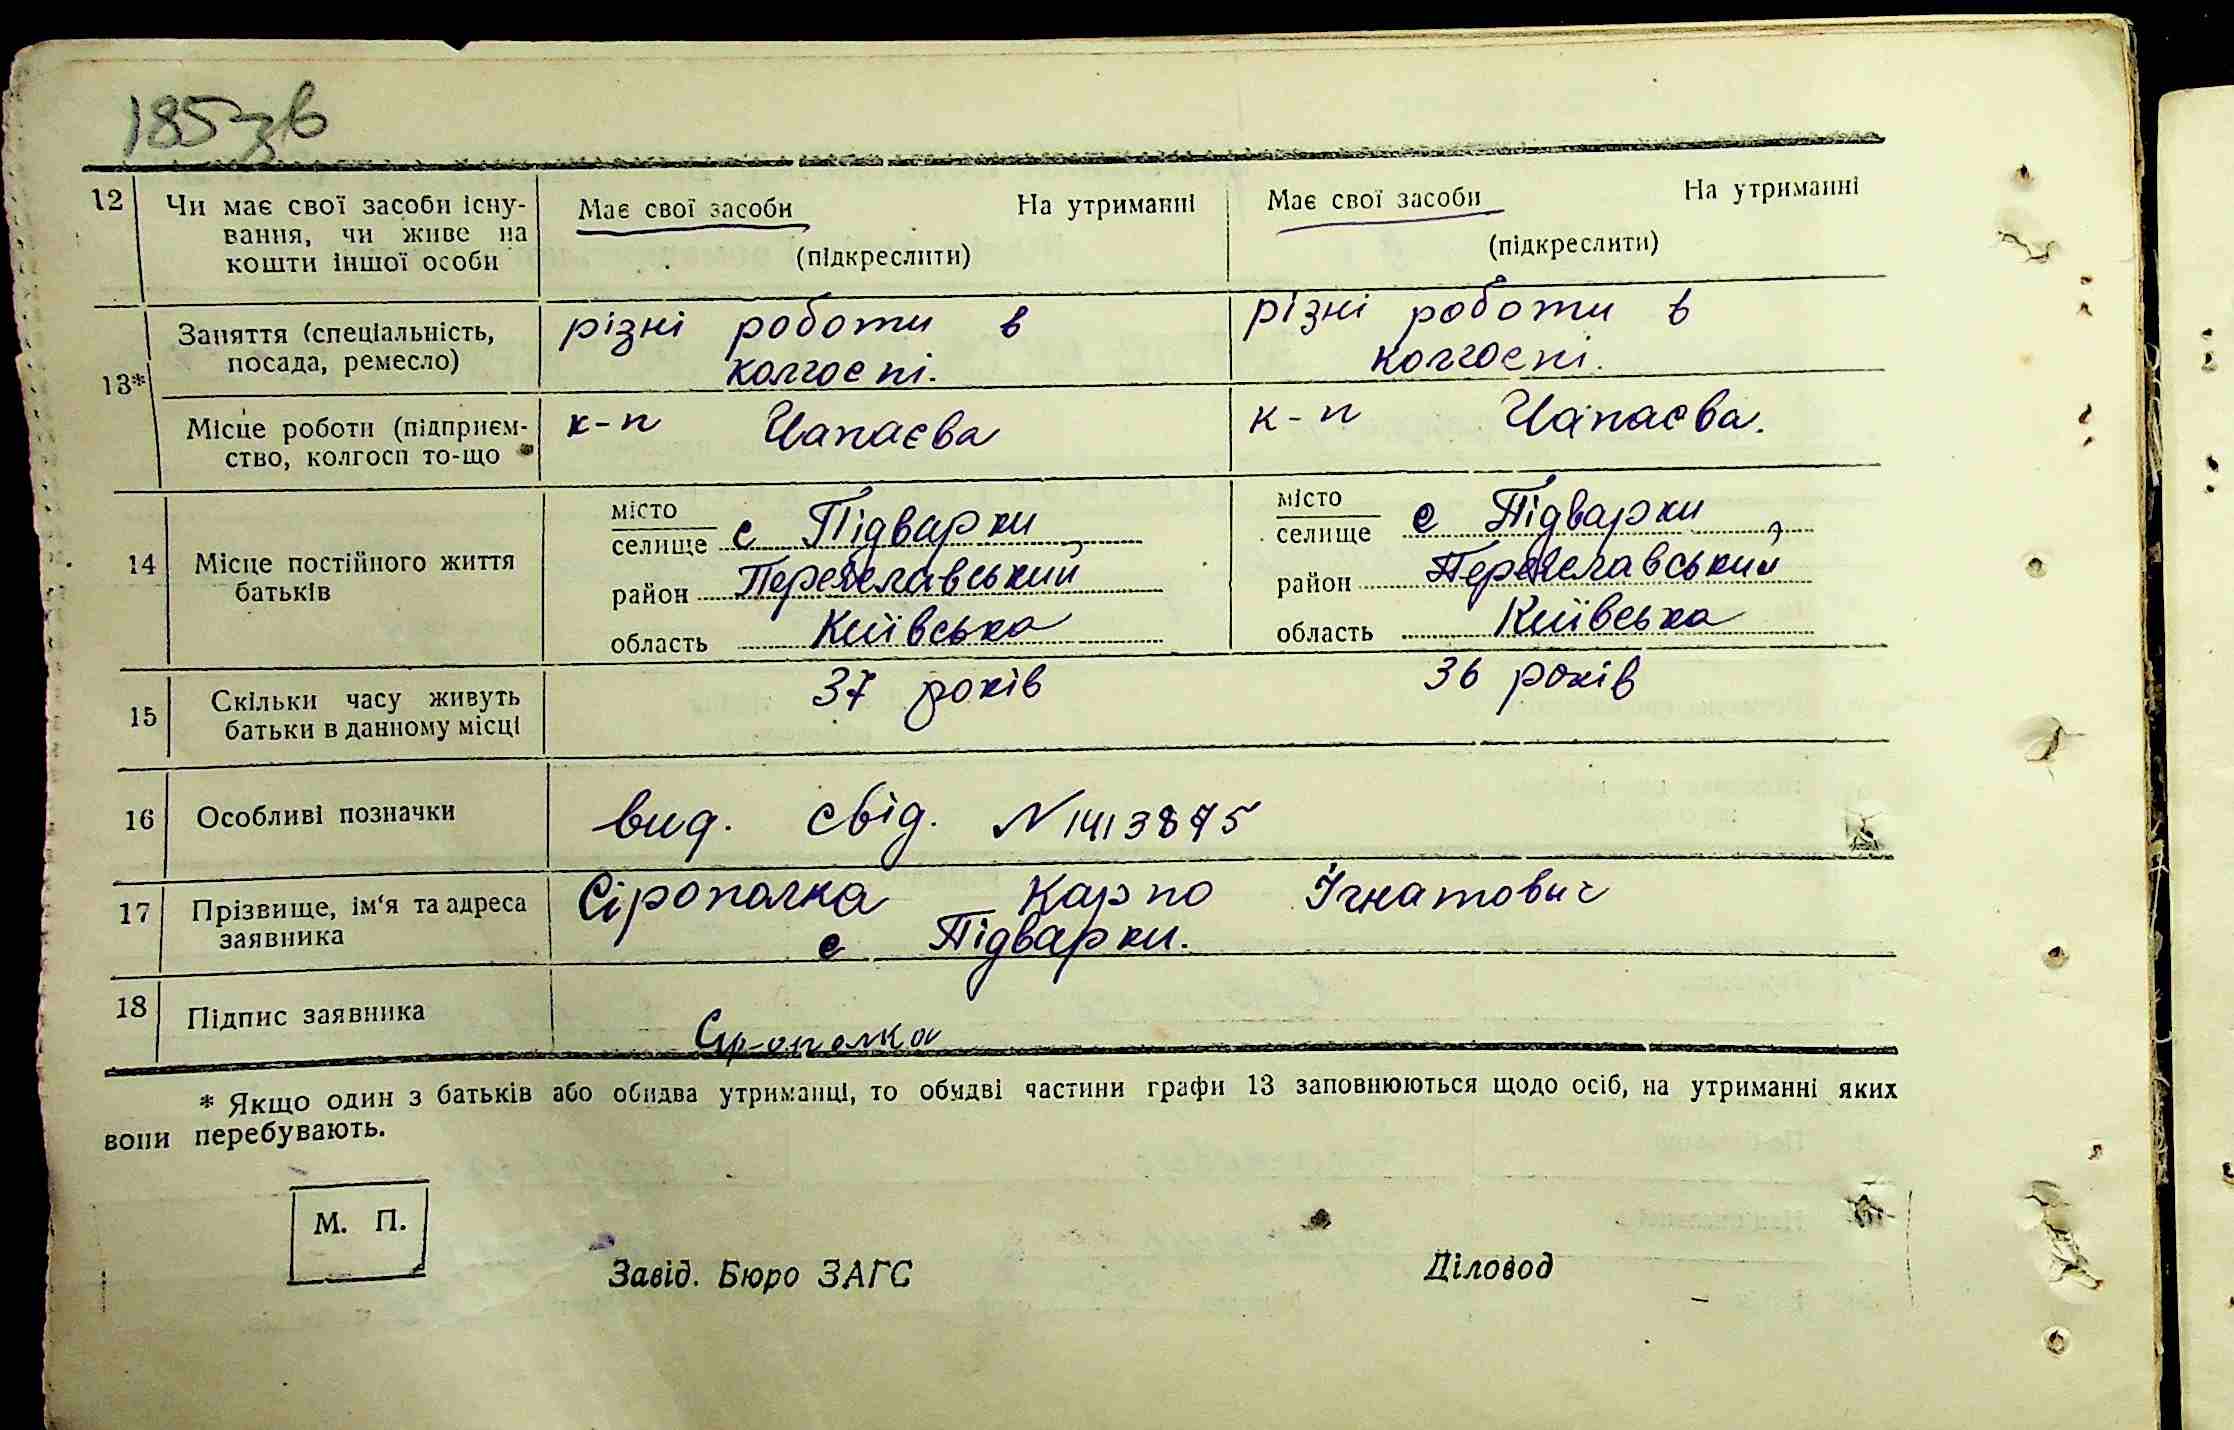 185 зв
12 Чи має свої засоби існу- Має свої засоби На утриманні Має свої засоби На утриманні
вання, чи живе на (підкреслити) (підкреслити)
кошти іншої особи
13* Заняття (спеціальність, різні роботи в різні роботи в
посада, ремесло) колгоспі. колгоспі.
Місце роботи (підприєм- к-п Чапаєва к-п Чапаєва.
ство, колгосп то-що
14 Місце постійного життя місто селище с Підварки, місто селище с Підварки,
батьків район Переяславський район Переяславський
область Київська область Київська
15 Скільки часу живуть 37 років 36 років
батьки в данному місці
16 Особливі позначки вид. свід. № 1413875
17 Прізвище, ім'я та адреса Сірополка Карпо Ігнатович
заявника с Підварки.
18 Підпис заявника Сірополка
* Якщо один з батьків або обидва утриманці, то обидві частини графи 13 заповнюються щодо осіб, на утриманні яких
вони перебувають.
М. П.
Завід. Бюро ЗАГС Діловод